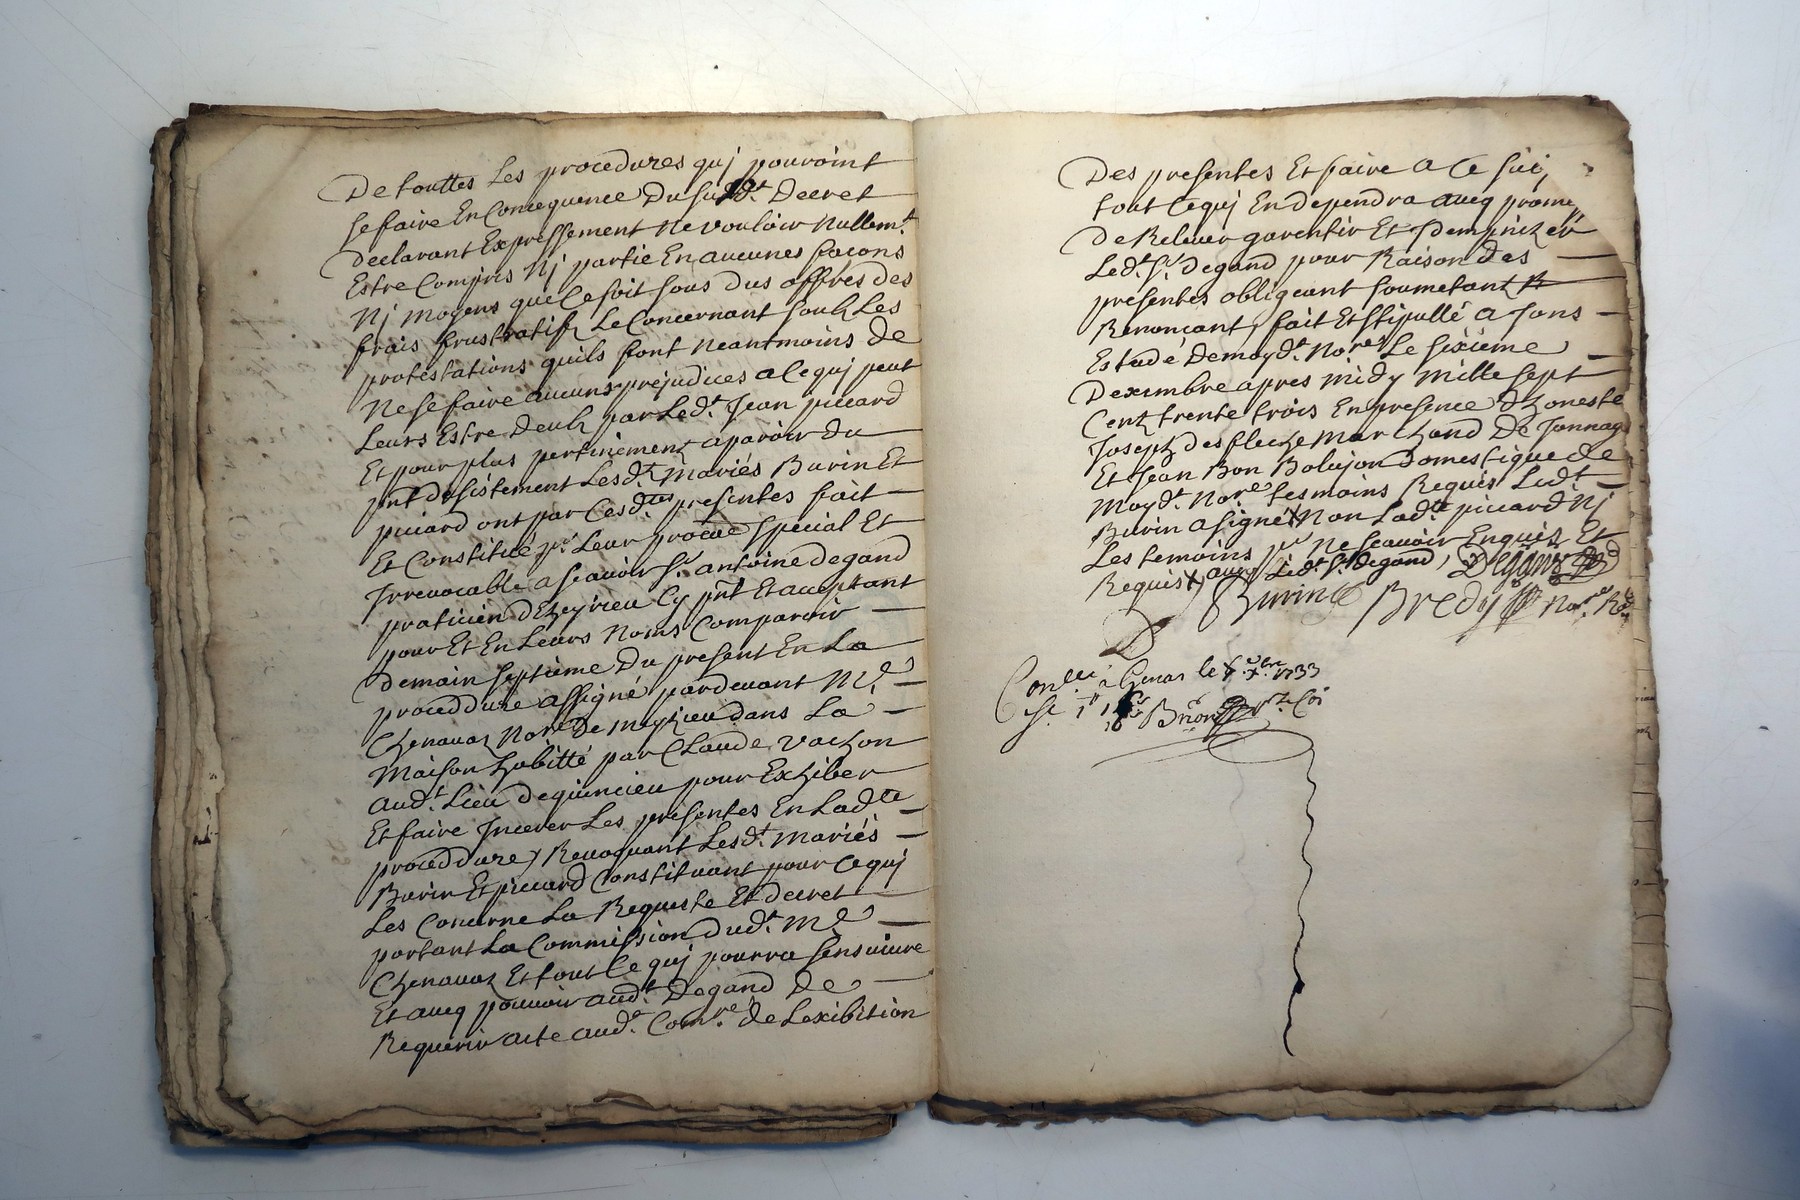 De touttes Les procedures quj pouroint
se faire En Concequence Du susd.t Decret
Declarant Expressement Ne vouloir Nullem.t
Estre Compris Nj partie En aucunes facons
Nj moyens que Ce soit sous Dus offres des
frais frustratifs Le Concernant soub Les
protestations quils font neantmoins de
Ne se faire aucuns prejudices a Ce quj peut
Leurs Estre Deub par Led.t Jean piccard
Et pour plus pertinement aparoir du
pnt desistement Lesd.t mariés Burin Et
piccard ont par Cesd.tes presentes fait
Et Constitué p.r Leur procué special Et
Irrevocable a scavoir s.r antoine degand
praticien d'heyrieu Cy pnt Et aceptant
pour Et En Leurs Noms Comparoir
Demain septieme Du present En La
proceddure assigné pardevant M.e
Chenavaz No.re De meyzieu dans La
Maison habitté par Claude vachon
aud.t Lieu de quincieu pour Exhiber
Et faire Incerer Les presentes En Lad.te
proceddure, Revoquant Lesd.t mariés
Burin Et piccard Constituant pour Ce quj
Les Concerne La Requeste Et decret
portant La Commission dud.t M.e
Chenavaz Et tout Ce quj pourra sensuivre
Et aveq pouvoir aud.t Degand De
Requerir acte aud.t Com.re de Lexibition
Des presentes Et faire a Ce suj
tout Ce quj En dependra aveq prome
De Relever garentir Et Dempnizer
Led.t s.r degand pour Raison des
presentes obligeant soumetant
Renoncant, fait Et stipullé a Jons
Estude De moyd.t No.re Le sixieme
Dexembre apres midy mille sept
Cent trente trois En presence d'honeste
Joseph desfleche marchand De Jonnag
Et Jean Bon Bolujon domestique de
moyd.t No.re tesmoins Requis Led.t
Burin a signé Non Lad.te piccard Nj
Les temoins p.r Ne scavoir Enquis Et
Requis x aveq Led.t s.r degand, Degand
Burin Bredy No.re
Con.llé a Genas le 1733